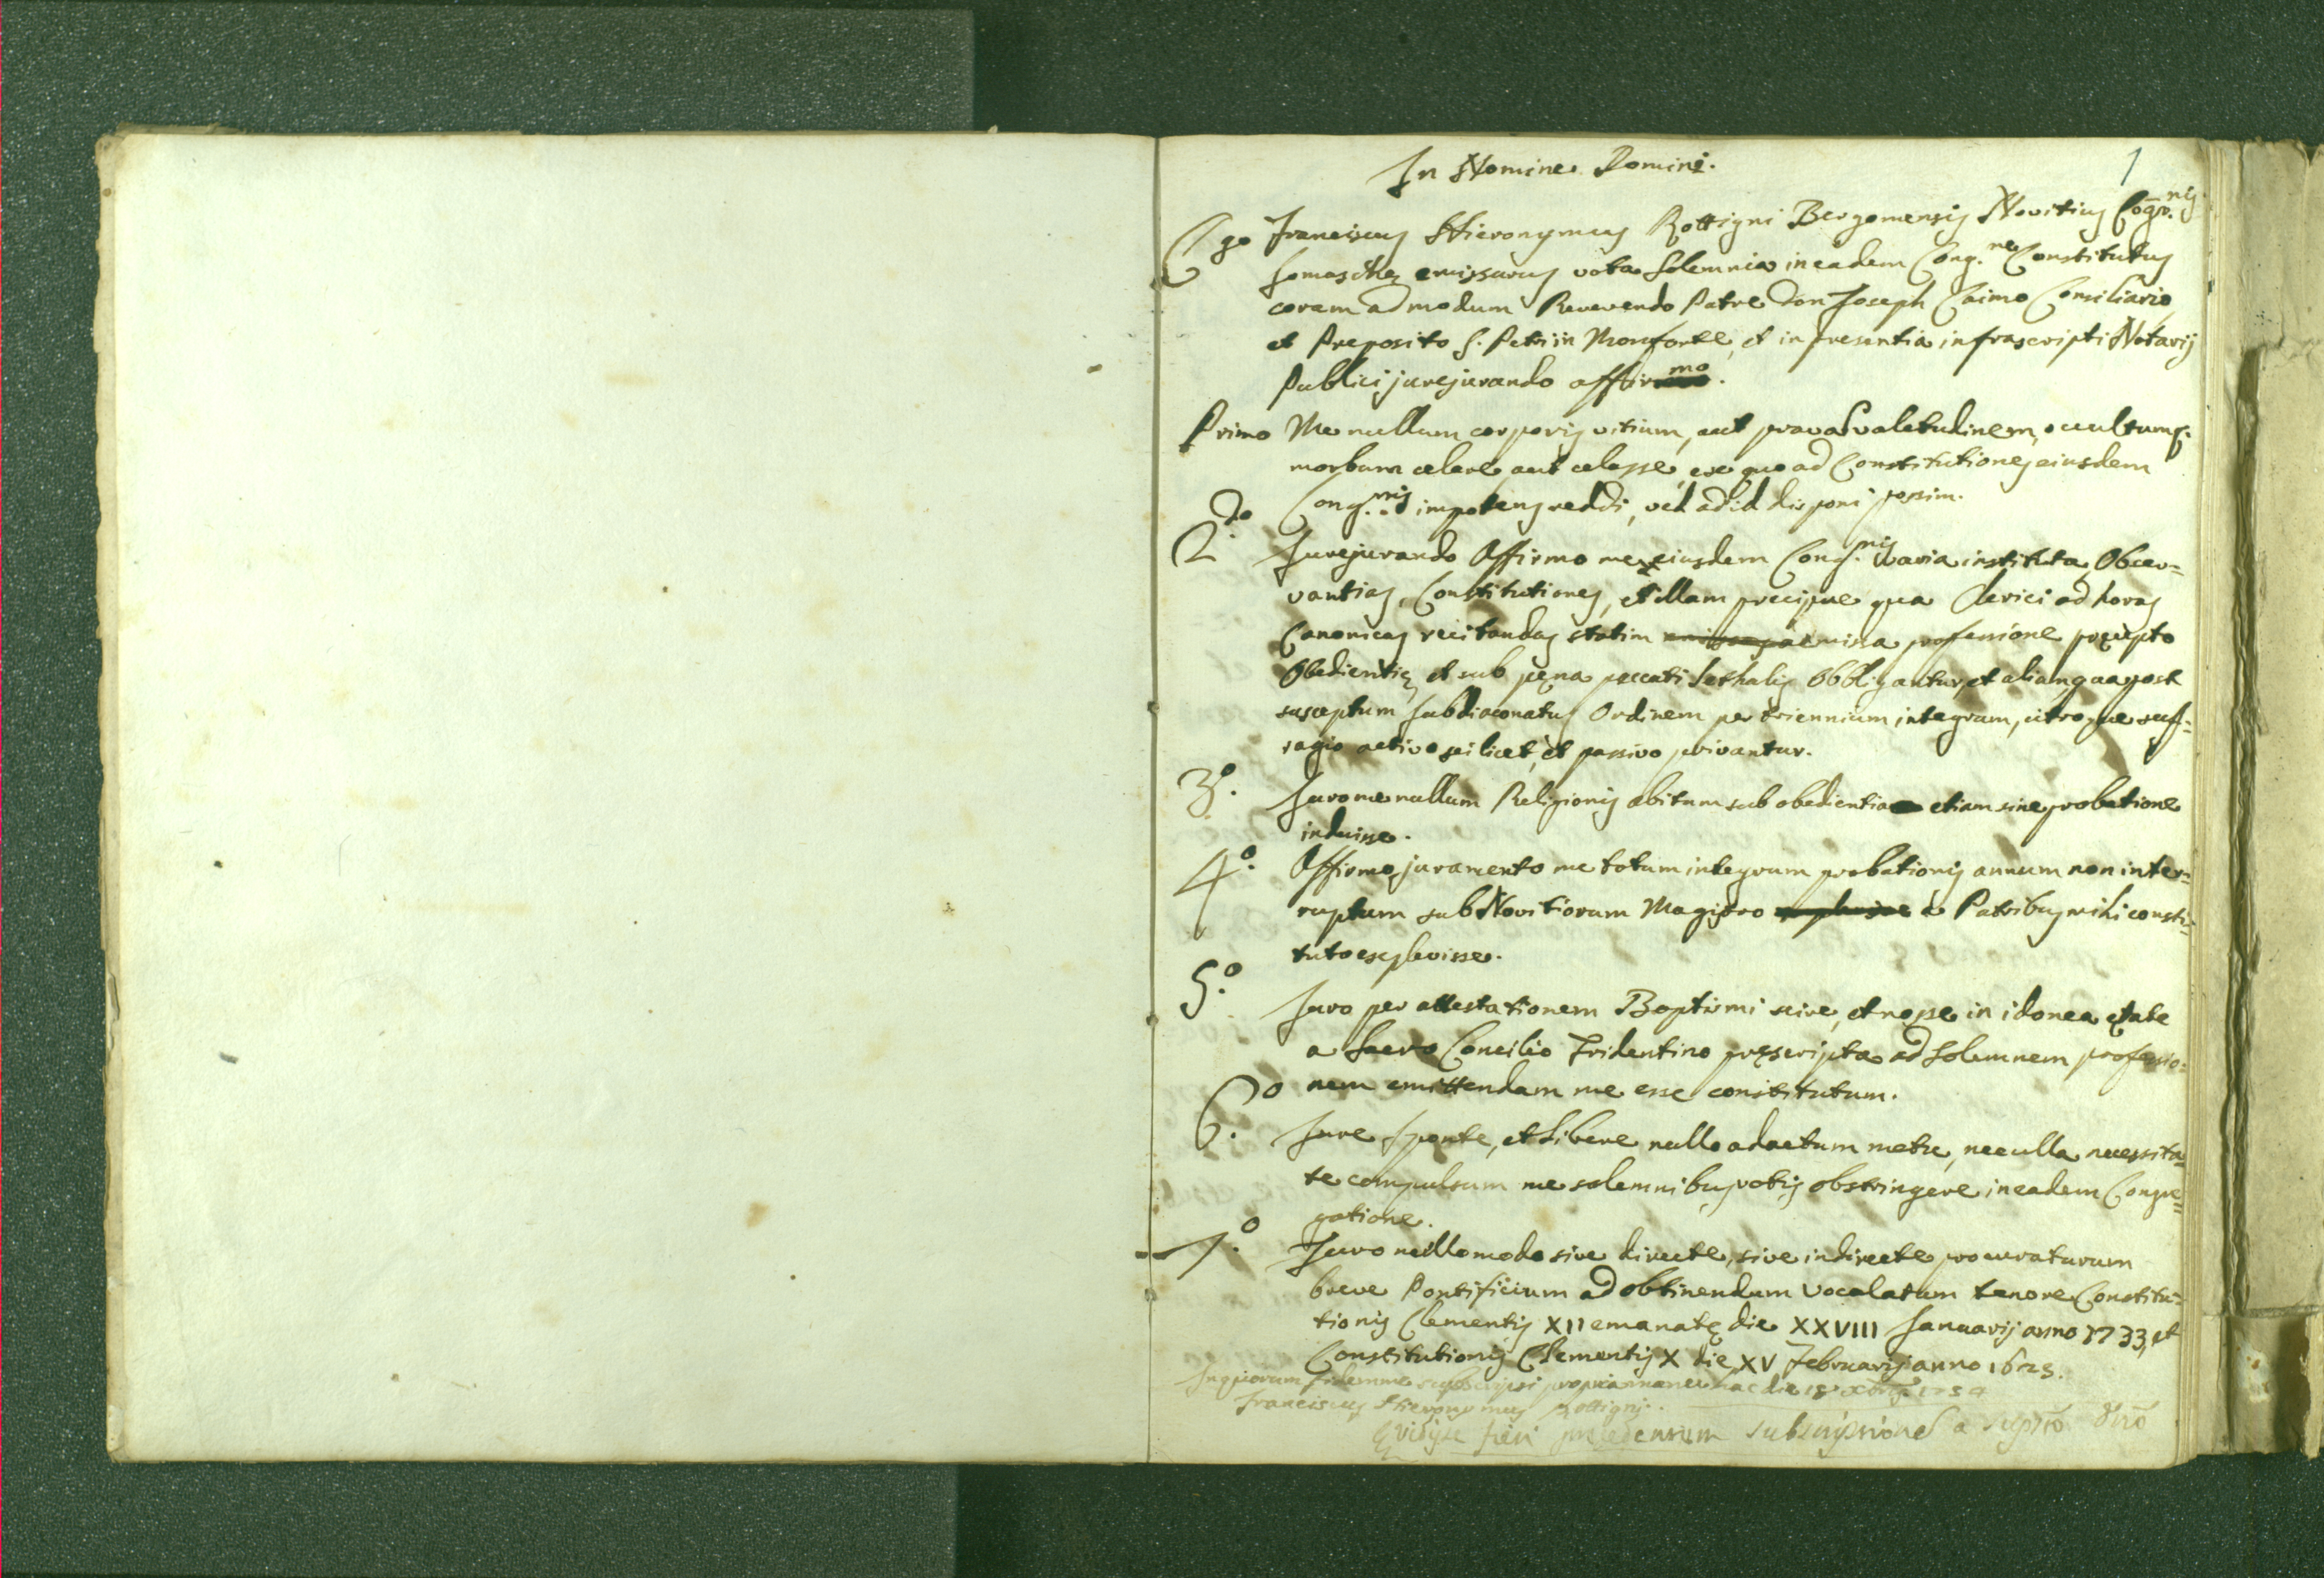 In Nomine Domini.
1
Ego Franciscus Hieronymus Rottigni Bergomensis Novitius Cogr.nis
Somaschę emissurus vota Solemnia in eadem Cong.ne Constitutus
coram admodum Reverendo Patre Don Joseph Caimo Consiliario,
et Preposito S. Petri in Monforte, et in presentia infrascripti Notarij
Publici jurejurando affirmo.
Primo Me nullum corporis vitium, aut pravã valetudinem, occultumq.
morbum celare, aut celasse, ex quo ad Constitutiones eiusdem
Cong.nis impotens reddi, vel ad id disponi possim.
2.do Jurejurando Affirmo me eiusdem Cong.nis varia instituta, Obcer=
vantias, Constitutiones, et illam precipue qua Clerici ad horas
Canonicas recitandas statim emissa professione pręcepto
Obedientię, et sub pęna peccati lethalis Obbligantur, et aliam qua post
susceptum Subdiaconatus Ordinem per triennium integrum, utroque suf=
ragio activo scilicet, et passivo privantur.
3.o Juro me nullum Religionis abitum sub obedientia etiam sine probatione
induisse.
4.o Affirmo juramento me totum integrum probationis annum non inter=
ruptum sub Novitiorum Magistro a Patribus mihi consti=
tuto explevisse.
5.o Juro per attestationem Baptismi scire, et nosse in idonea ętate
a Sacro Concilio Tridentino pręscripta ad Solemnem professio=
nem emittendam me esse constitutum.
6.o Jure Sponte, et Libere nullo adactum metu, nec ulla necessita=
te compulsum me solemnibus votis obstringere in eadem Congre=
gatione.
7.o Juro nullo modo sive directe, sive indirecte procuraturum
breve Pontificium ad obtinendum Vocalatum tenore Constitu=
tionis Clementis XII emanatę die XXVIII Januarij anno 1733, et
Constitutionis Clementis X die XV Februarij anno 1675.
In quorum fidem me subscripsi propria manu hac die 1754
Franciscus Hieronymus Rottigni.
vidisse fieri precedensum subscripsione a